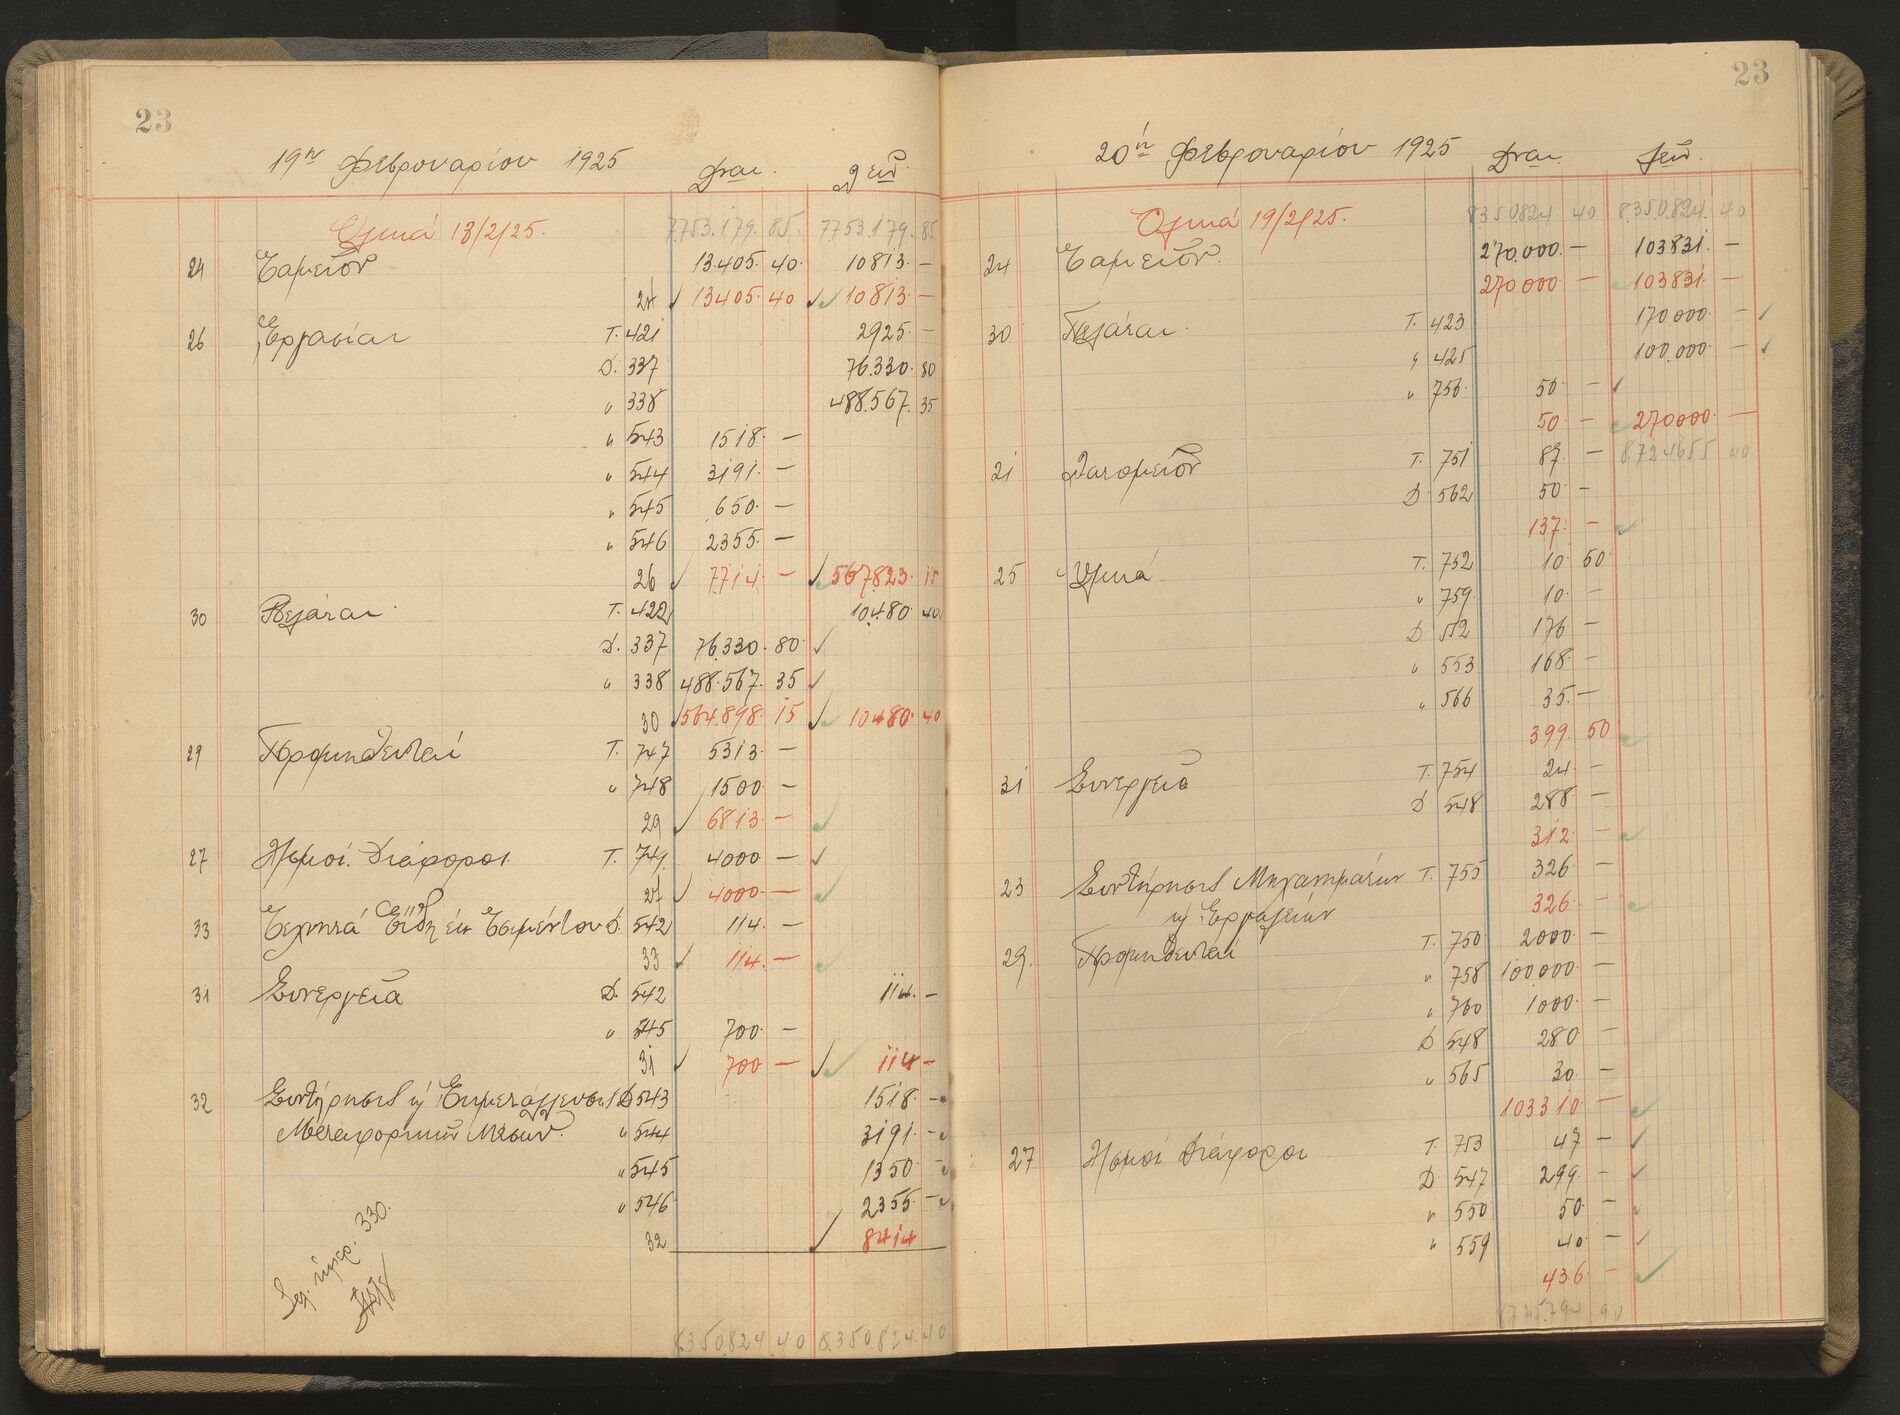 23
19ην Φεβρουαρίου 1925 Δναι. Λειν.
Ολικά 18/2/25. 7753.179. 85. 7753.179. 85
24 Ταμείον 13.405. 40. 10813. —
24 ✓ 13405. 40 ✓ 10813. —
26 Εργασίαι Τ. 421 2925 —
Δ. 337 76.330. 80
" 338 488.567. 35
" 543 1518. —
" 544 3191. —
" 545 650. —
" 546 2355. —
26 ✓ 7714. — ✓ 567.823. 15
30 Πελάται Τ. 422 10.480. 40
Δ. 337 76.330. 80 ✓
" 338 488.567. 35 ✓
30 ✓ 564.898. 15 ✓ 10480. 40
29 Προμηθευταί Τ. 747 5313. —
" 748 1500. —
29 ✓ 6813. — ✓
27 Λ/σμοί Διάφοροι Τ. 749 4000. — ✓
27 ✓ 4000. — ✓
33 Τεχνητά Είδη εκ Τσιμέντου Δ. 542 114. —
33 ✓ 114. — ✓
31 Συνεργεία Δ. 542 114. —
" 545 700. —
31 ✓ 700 — ✓ 114 —
32 Συντήρησις κ' Εκμετάλλευσις Δ 543 1518. —
Μεταφορικών Μέσων. " 544 3191. —
" 545 1350 —
" 546 2355. —
32 ✓ 8414
330.
8.350.824. 40 8.350.824. 40
23
20ή Φεβρουαρίου 1925 Δναι. Λειν.
Ολικά 19/2/25. 8350.824 40 8.350.824. 40
24 Ταμείον. 270.000. — 103831. —
270000 — 103831. —
30 Πελάται. Τ. 423 170000. — ✓
" 425 100.000. — ✓
" 756. 50. — ✓
50. — 270000. —
21 Λατομείον Τ. 751 87. — 8.724655 40
Δ. 562 50. —
137. — ✓
25 Υλικά Τ. 752 10. 50
" 759. 10. —
Δ 552 176. —
" 553 168. —
" 566 35. —
399. 50 ✓
31 Συνεργεία Τ. 754 24. —
Δ 548 288. —
312. — ✓
23 Συντήρησις Μηχανημάτων Τ. 755 326. —
κ' Εργαλείων 326. — ✓
29. Προμηθευταί Τ. 750 2000. —
" 758 100.000. —
" 760 1000. —
Δ 548 280 —
" 565 30. —
103310. — ✓
27 Λ/σμοί Διάφοροι Τ. 753 47 — ✓
Δ. 547 299. — ✓
" 550 50. — ✓
" 559 40. — ✓
436. — ✓